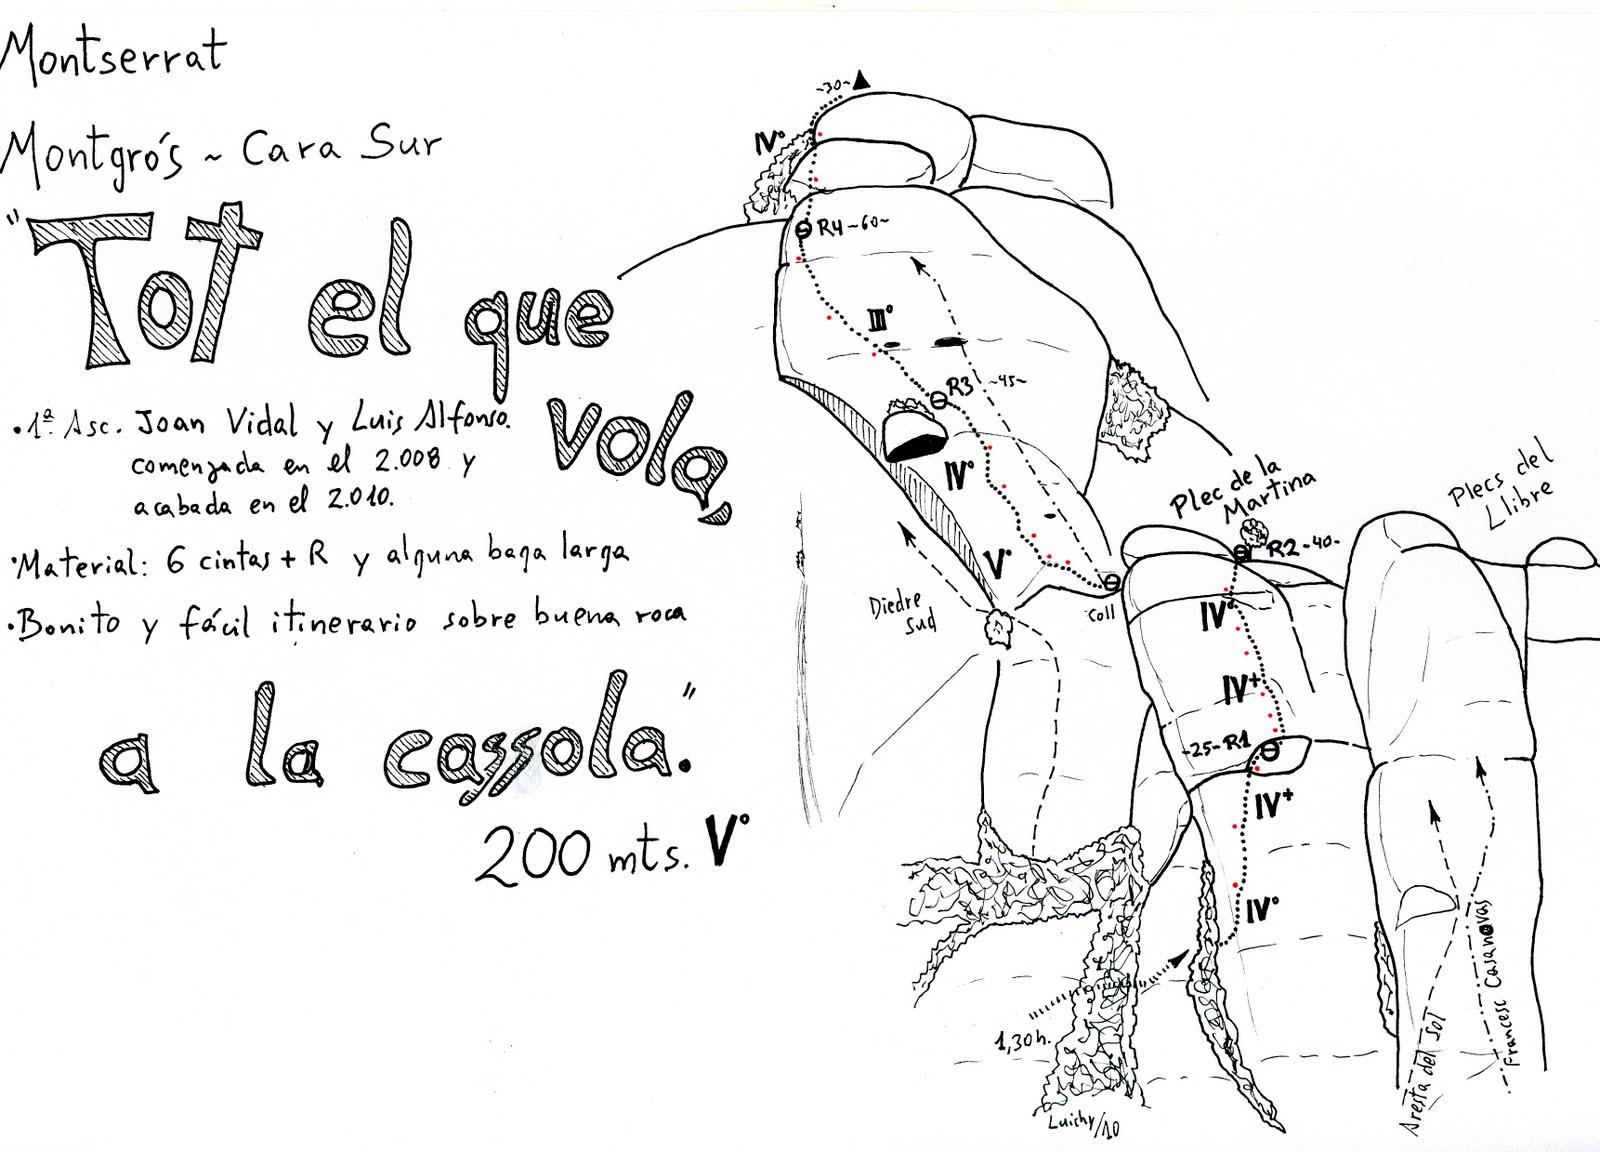 Montserrat
Montgrós ~ Cara Sur
"Tot el que
volg,
• 1ª Asc. Joan Vidal y Luis Alfonso.
comenzada en el 2.008 y
acabada en el 2.010.
• Material: 6 cintas + R y alguna baga larga
• Bonito y fácil itinerario sobre buena roca
a la cassola."
200 mts. V°
~30~
IV°
R4 ~60~
III°
R3 ~45~
IV°
V°
Diedre
Sud
Coll
Plec de la
Martina
R2 -40-
IV°
IV+
-25- R1
IV+
IV°
Plecs del
Llibre
1,30h.
Aresta del Sol
Francesc Casanovas
Luichy/10